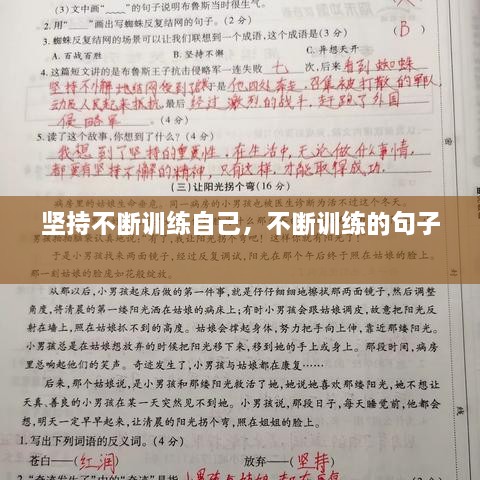 (3)文中" "的句子说明布鲁斯当时很生气。
2.用" "画出写蜘蛛反复结网的句子。(2分)
3.蜘蛛反复结网的场景可以让我们联想到一个成语,这个成语是(3分)
(B)
A.百战百胜 B.坚持不懈 C.异想天开
4.这篇短文讲的是布鲁斯王子抗击侵略军一连失败 七 次,后来 看到蜘蛛
坚持不懈地结网
于是 他四处奔走,召集被打散的军队,
动员人民起来抵抗,最后 经过激烈的战斗,赶跑了外国
侵略军。(4分)
5.读了这个故事,你想到了什么?(4分)
我想到了坚持的重要性,在生活中,无论做什么事情,
都要有坚持不懈的精神,只有这样,才能取得成功。
(三)让阳光拐个弯(16分)
坚持不断训练自己,不断训练的句子
于是小男孩找来两面镜子,经过反复调试,阳光在那个午后终于照在姑娘的床上。
一刻,姑娘的脸庞如花般绽放。
从那以后,小男孩起床后做的第一件事,就是仔仔细细地擦拭那两面镜子,然后调整
角度,将清晨的第一缕阳光洒在姑娘的病床上;有时小男孩会跟姑娘调皮,故意把阳光反
射在墙上,照在姑娘抓不到的高度。姑娘会撑起身体,努力把手向上伸,靠近那缕阳光。
小男孩总是在姑娘想放弃的时候把阳光移下来,移到她的手上或身上。那段时间,病房
里总会响起他们的笑声。奇迹发生了,小男孩与姑娘都在康复……
后来,那个姑娘说,是小男孩和那缕阳光救活了她,她说她喜欢那缕阳光,她不想让
天真、善良的小男孩在某一天突然见不到她。小男孩说,那段日子,每天睡觉前,他都会
想,明天一定早早起来,让清晨的阳光拐个弯,照在姐姐的脸上。
1.写出下列词语的反义词。(4分)
苍白——(红润) 放弃——(坚持)